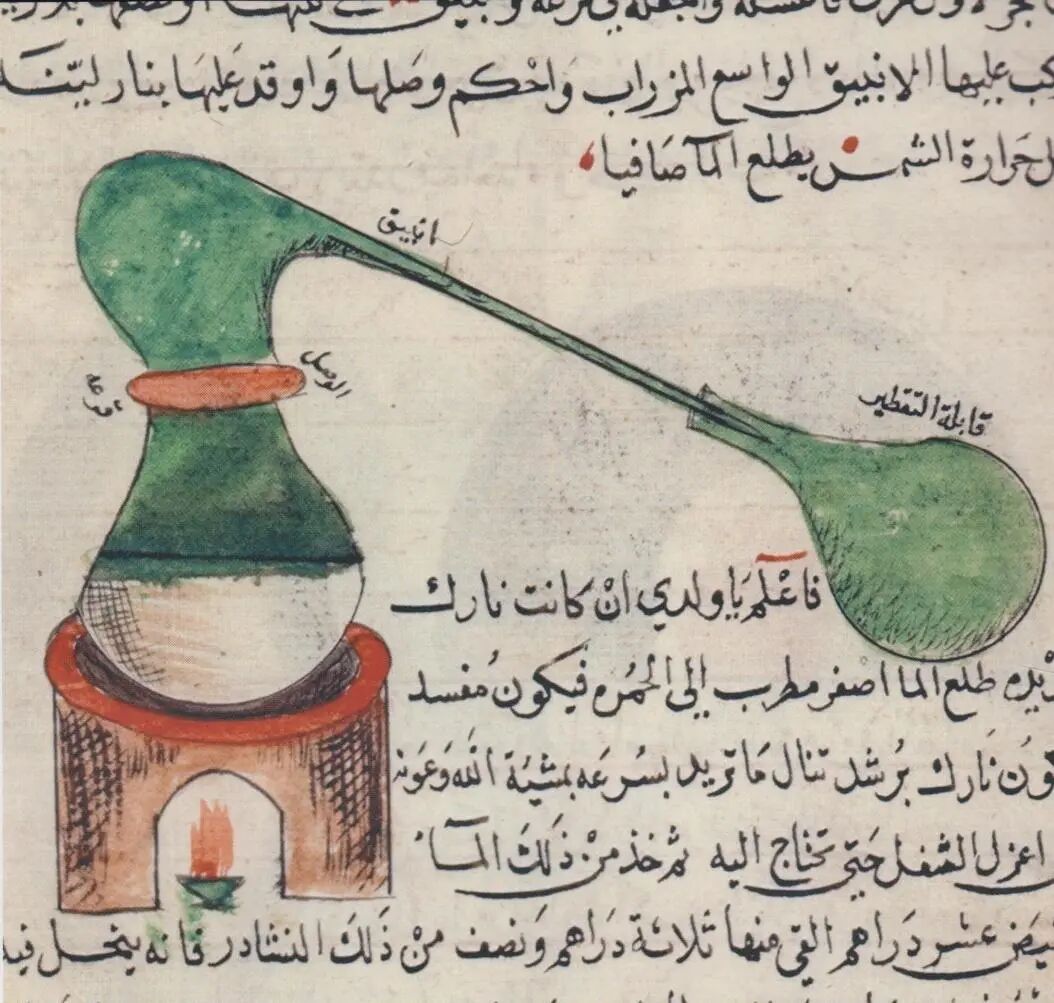 كب عليها الانبيق الواسع المزراب واحكم وصلها واوقد عليها بنار لينة
حرارة الشمس يطلع المآ صافيا
انبيق
الوصل
قرعه
قابلة التقطير
فاعْلم يَا ولدي انْ كانت نارك
طلع الما اصفر مطرب الي الحمره فيكون مُفسد
نارك برشد تنال مَا تريد بسرعه بمشية الله وَعَونه
اعزل الثفل حَتي تحتاج اليه ثم خذ منْ ذلكَ المآء
عشر دَراهم القي منها ثلاثة دَراهم وَنصف منْ ذَلكَ النشادر فانه ينحل فيه